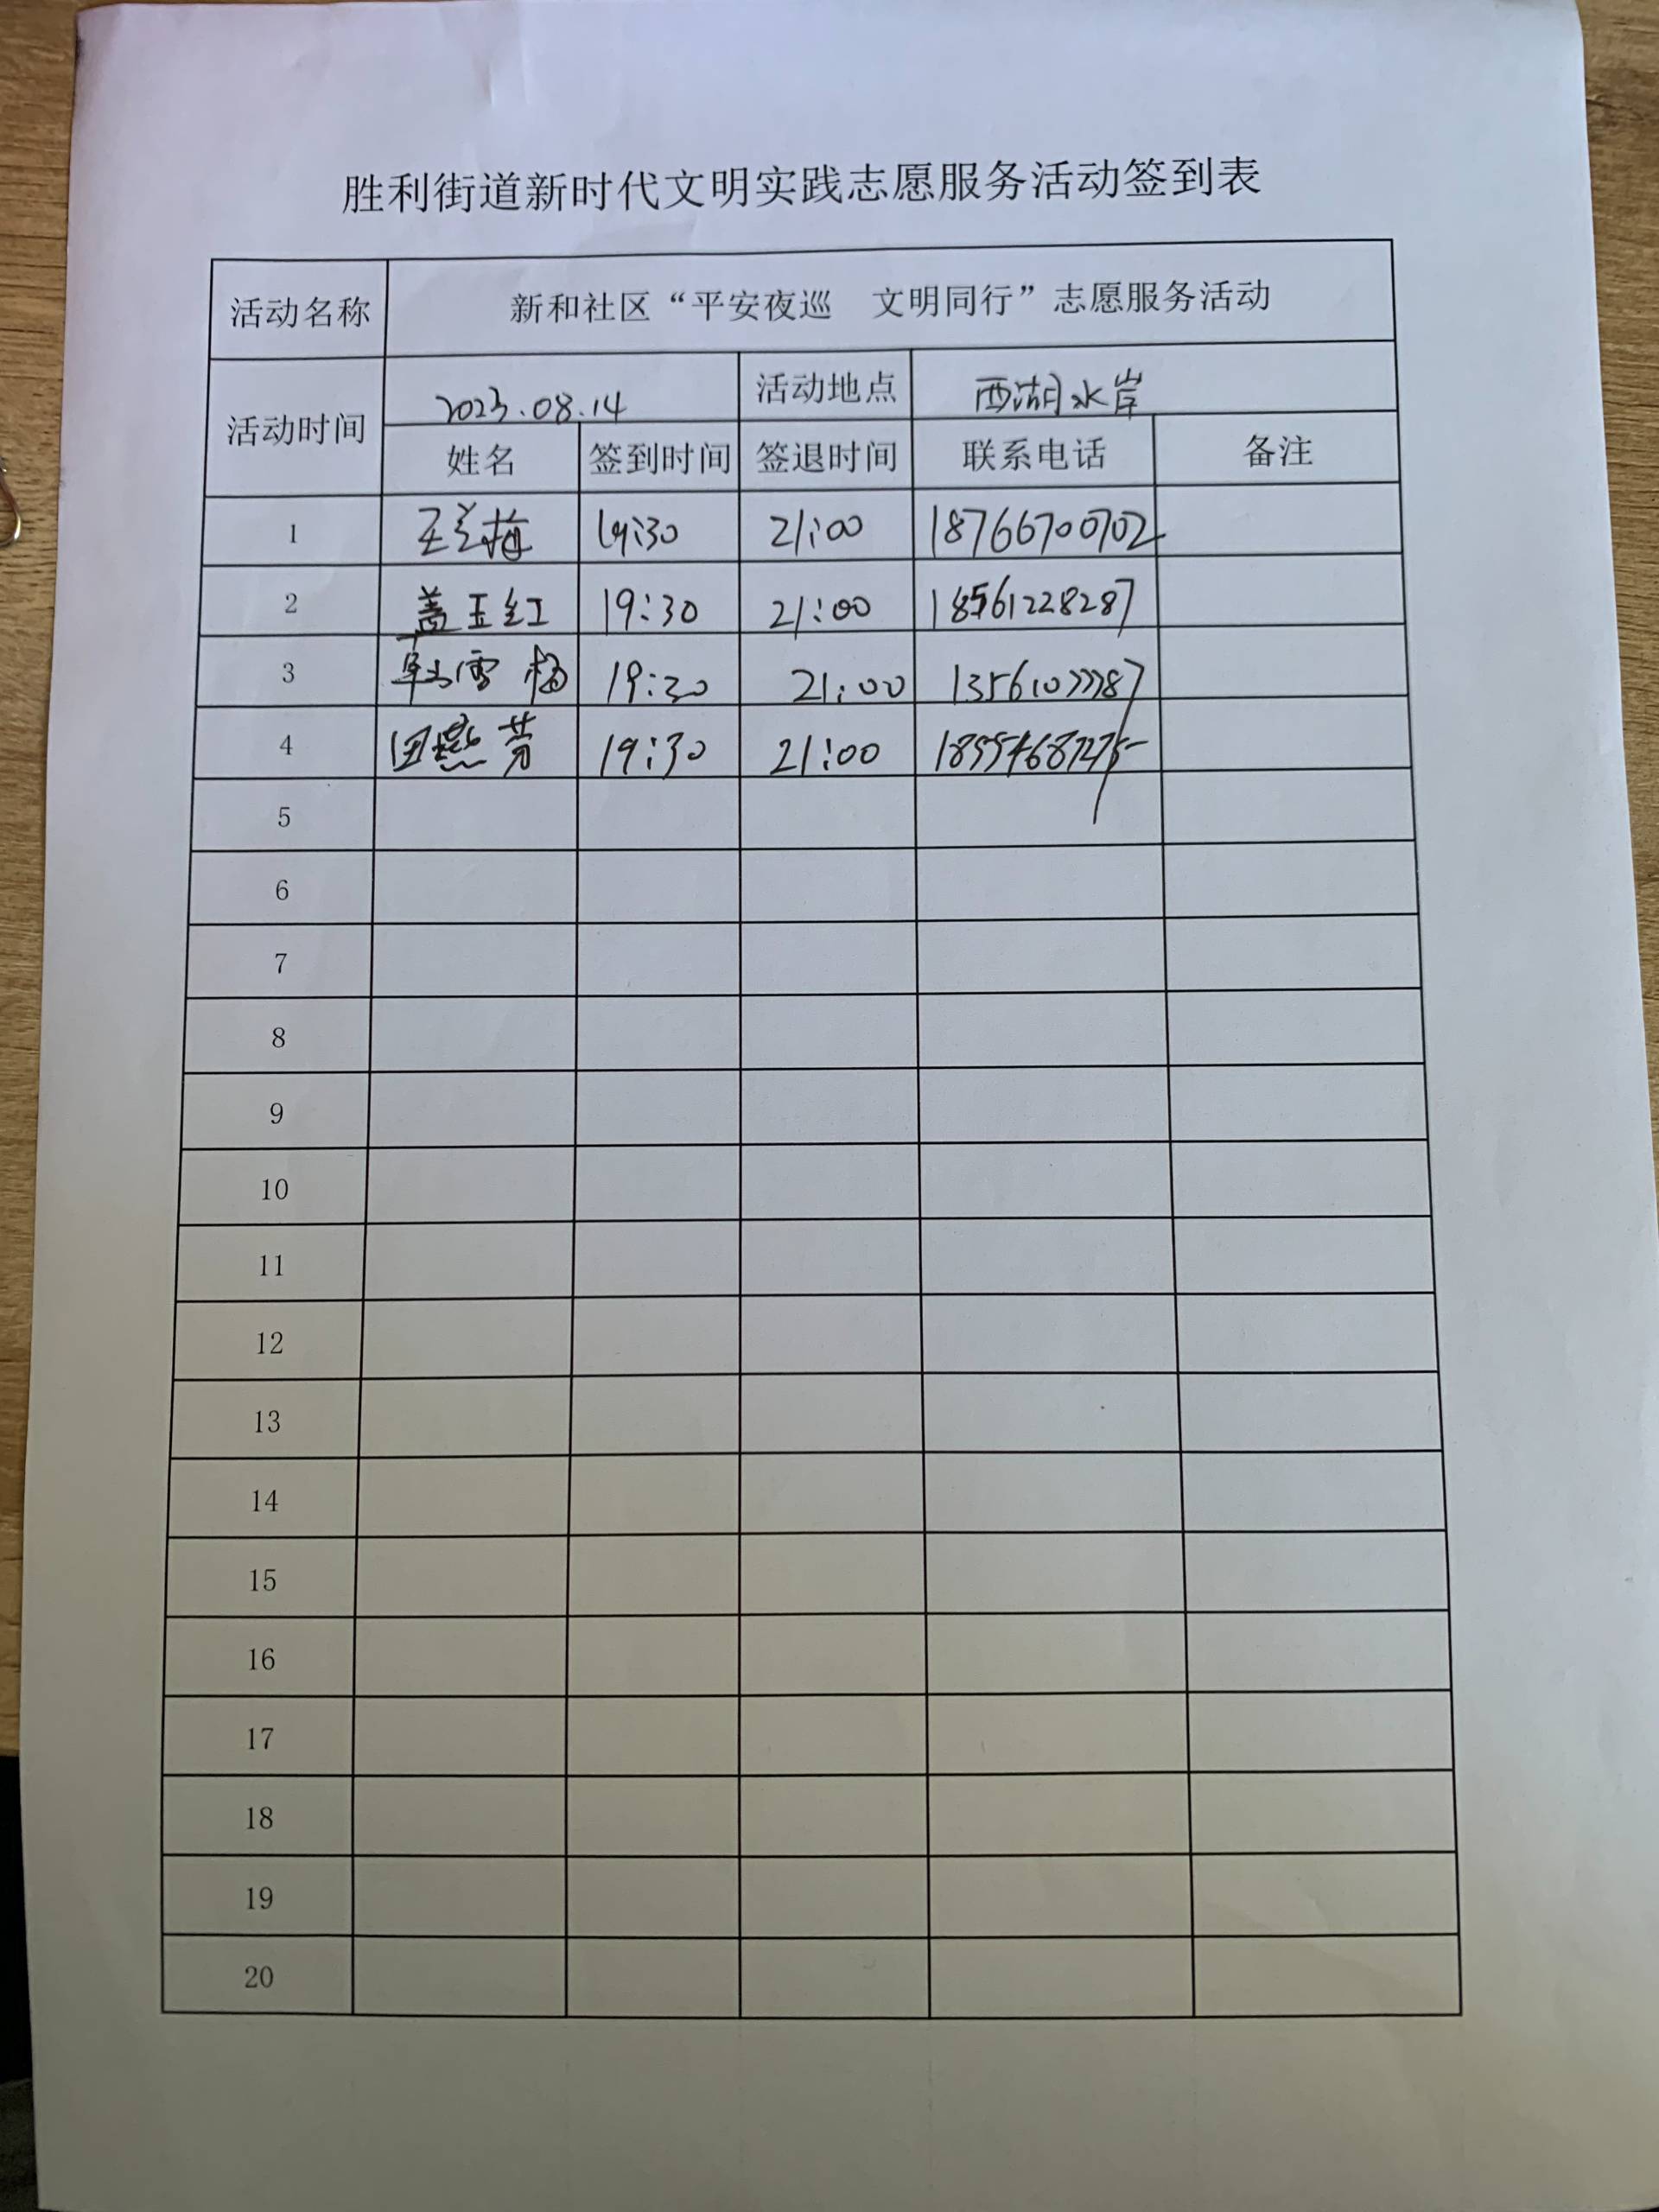 胜利街道新时代文明实践志愿服务活动签到表
活动名称 新和社区“平安夜巡 文明同行”志愿服务活动
活动时间 2023.08.14 活动地点 西湖水岸
姓名 签到时间 签退时间 联系电话 备注
1 王兰梅 19:30 21:00 18766700702
2 盖玉红 19:30 21:00 18561228287
3 雪梅 19:30 21:00
4 田燕芳 19:30 21:00
5
6
7
8
9
10
11
12
13
14
15
16
17
18
19
20